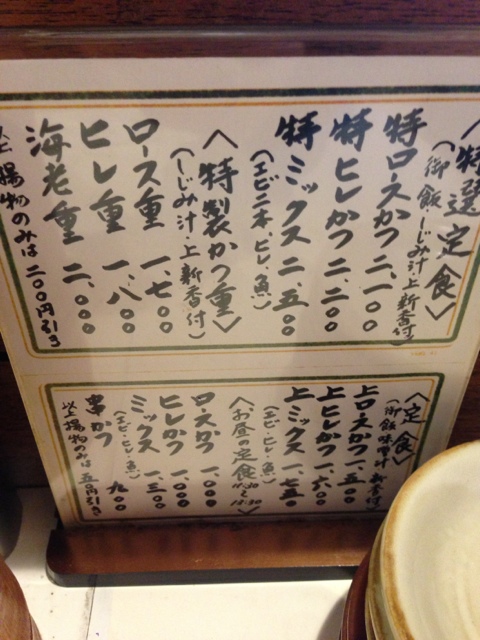 〈特選定食〉
(御飯・しじみ汁上新香付)
特ロースかつ 二、一〇〇
特ヒレかつ 二、二〇〇
特ミックス 二、五〇〇
(エビ二本、ヒレ、魚)
〈特製かつ重〉
(しじみ汁・上新香付)
ロース重 一、七〇〇
ヒレ重 一、八〇〇
海老重 二、〇〇〇
以上揚物のみは二〇〇円引き
〈定食〉
(御飯味噌汁新香付)
上ロースかつ 一、五〇〇
上ヒレかつ 一、六〇〇
上ミックス 一、七五〇
(エビ・ヒレ・魚)
〈お昼の定食〉
ロースかつ 一、〇〇〇
ヒレかつ 一、〇〇〇
ミックス 一、三〇〇
(エビ・ヒレ・魚)
串かつ 九〇〇
以上揚物のみは五〇円引き